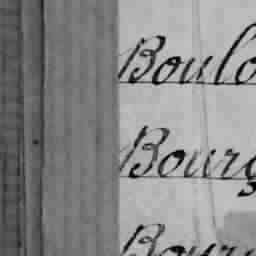 Boulo
Bourg
Bour